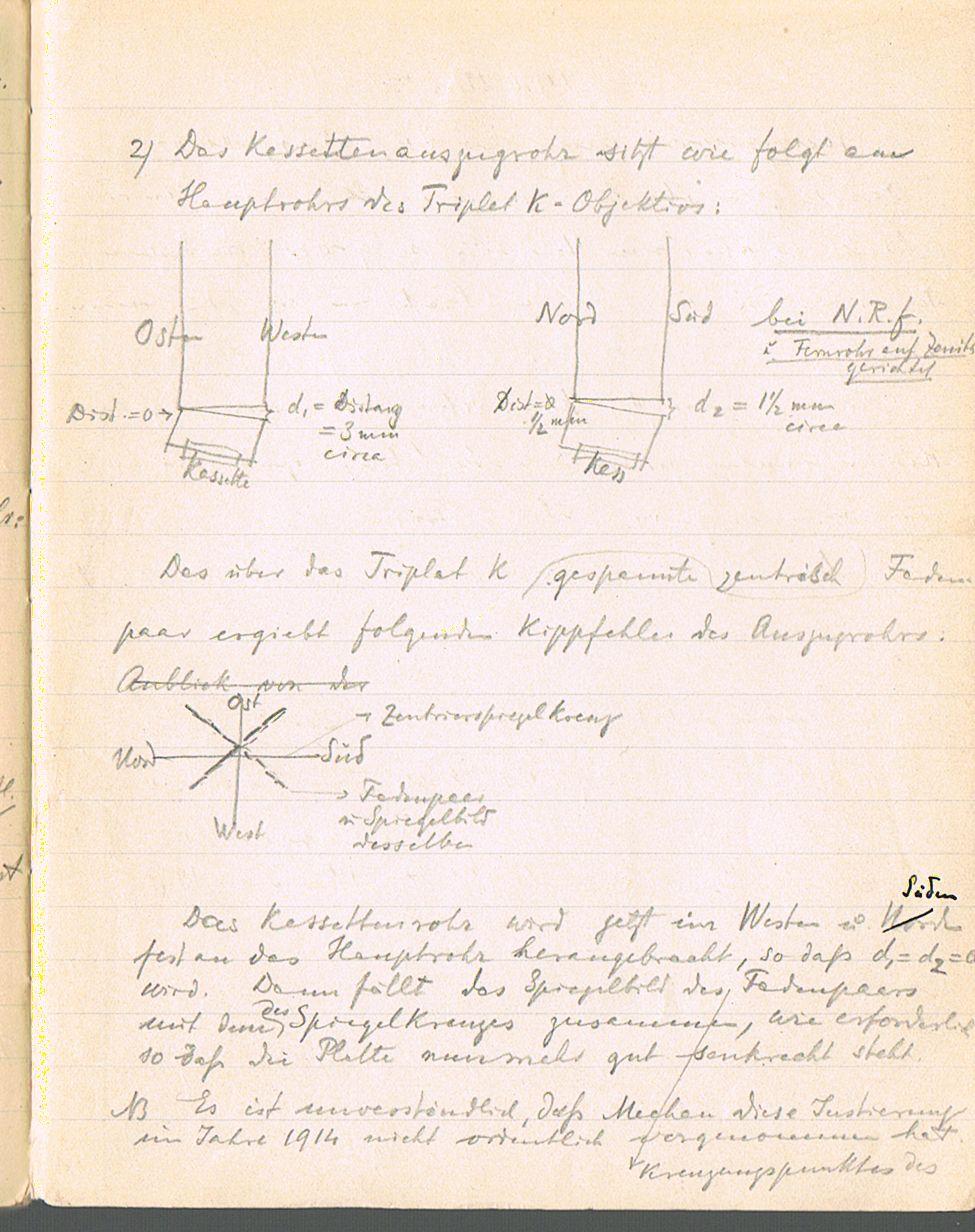 2) Das Kassettenauszugrohr sitzt wie folgt am
Hauptrohrs des Triplet K-Objektivs:
Osten Westen
Dist.=0→ d₁ = Distanz
= 3 mm
circa
Kassette
Nord Süd
bei N.R.f.
u Fernrohr auf Zenith
gerichtet
Dist=0
1/2 mm
d₂ = 1 1/2 mm
circa
Kass
Das über das Triplet K gespannte zentrisch Faden
paar ergiebt folgenden Kippfehler des Auszugrohrs:
Anblick von der
Ost
→ Zentrierspiegelkreuz
Nord Süd
→ Fadenpaar
u Spiegelbild
desselben
West
Süden
Das Kassettenrohr wird jetzt im Westen u. Norden
fest an das Hauptrohr herangebracht, so daß d₁ = d₂ = 0
wird. Dann fällt das Spiegelbild des Fadenpaars
mit dem des Spiegelkreuzes zusammen, wie erforderlich
so daß die Platte nunmehr gut senkrecht steht.
NB Es ist unverständlich, daß Mechau diese Justierung
im Jahre 1914 nicht ordentlich vorgenommen hat.
Kreuzungspunktes des